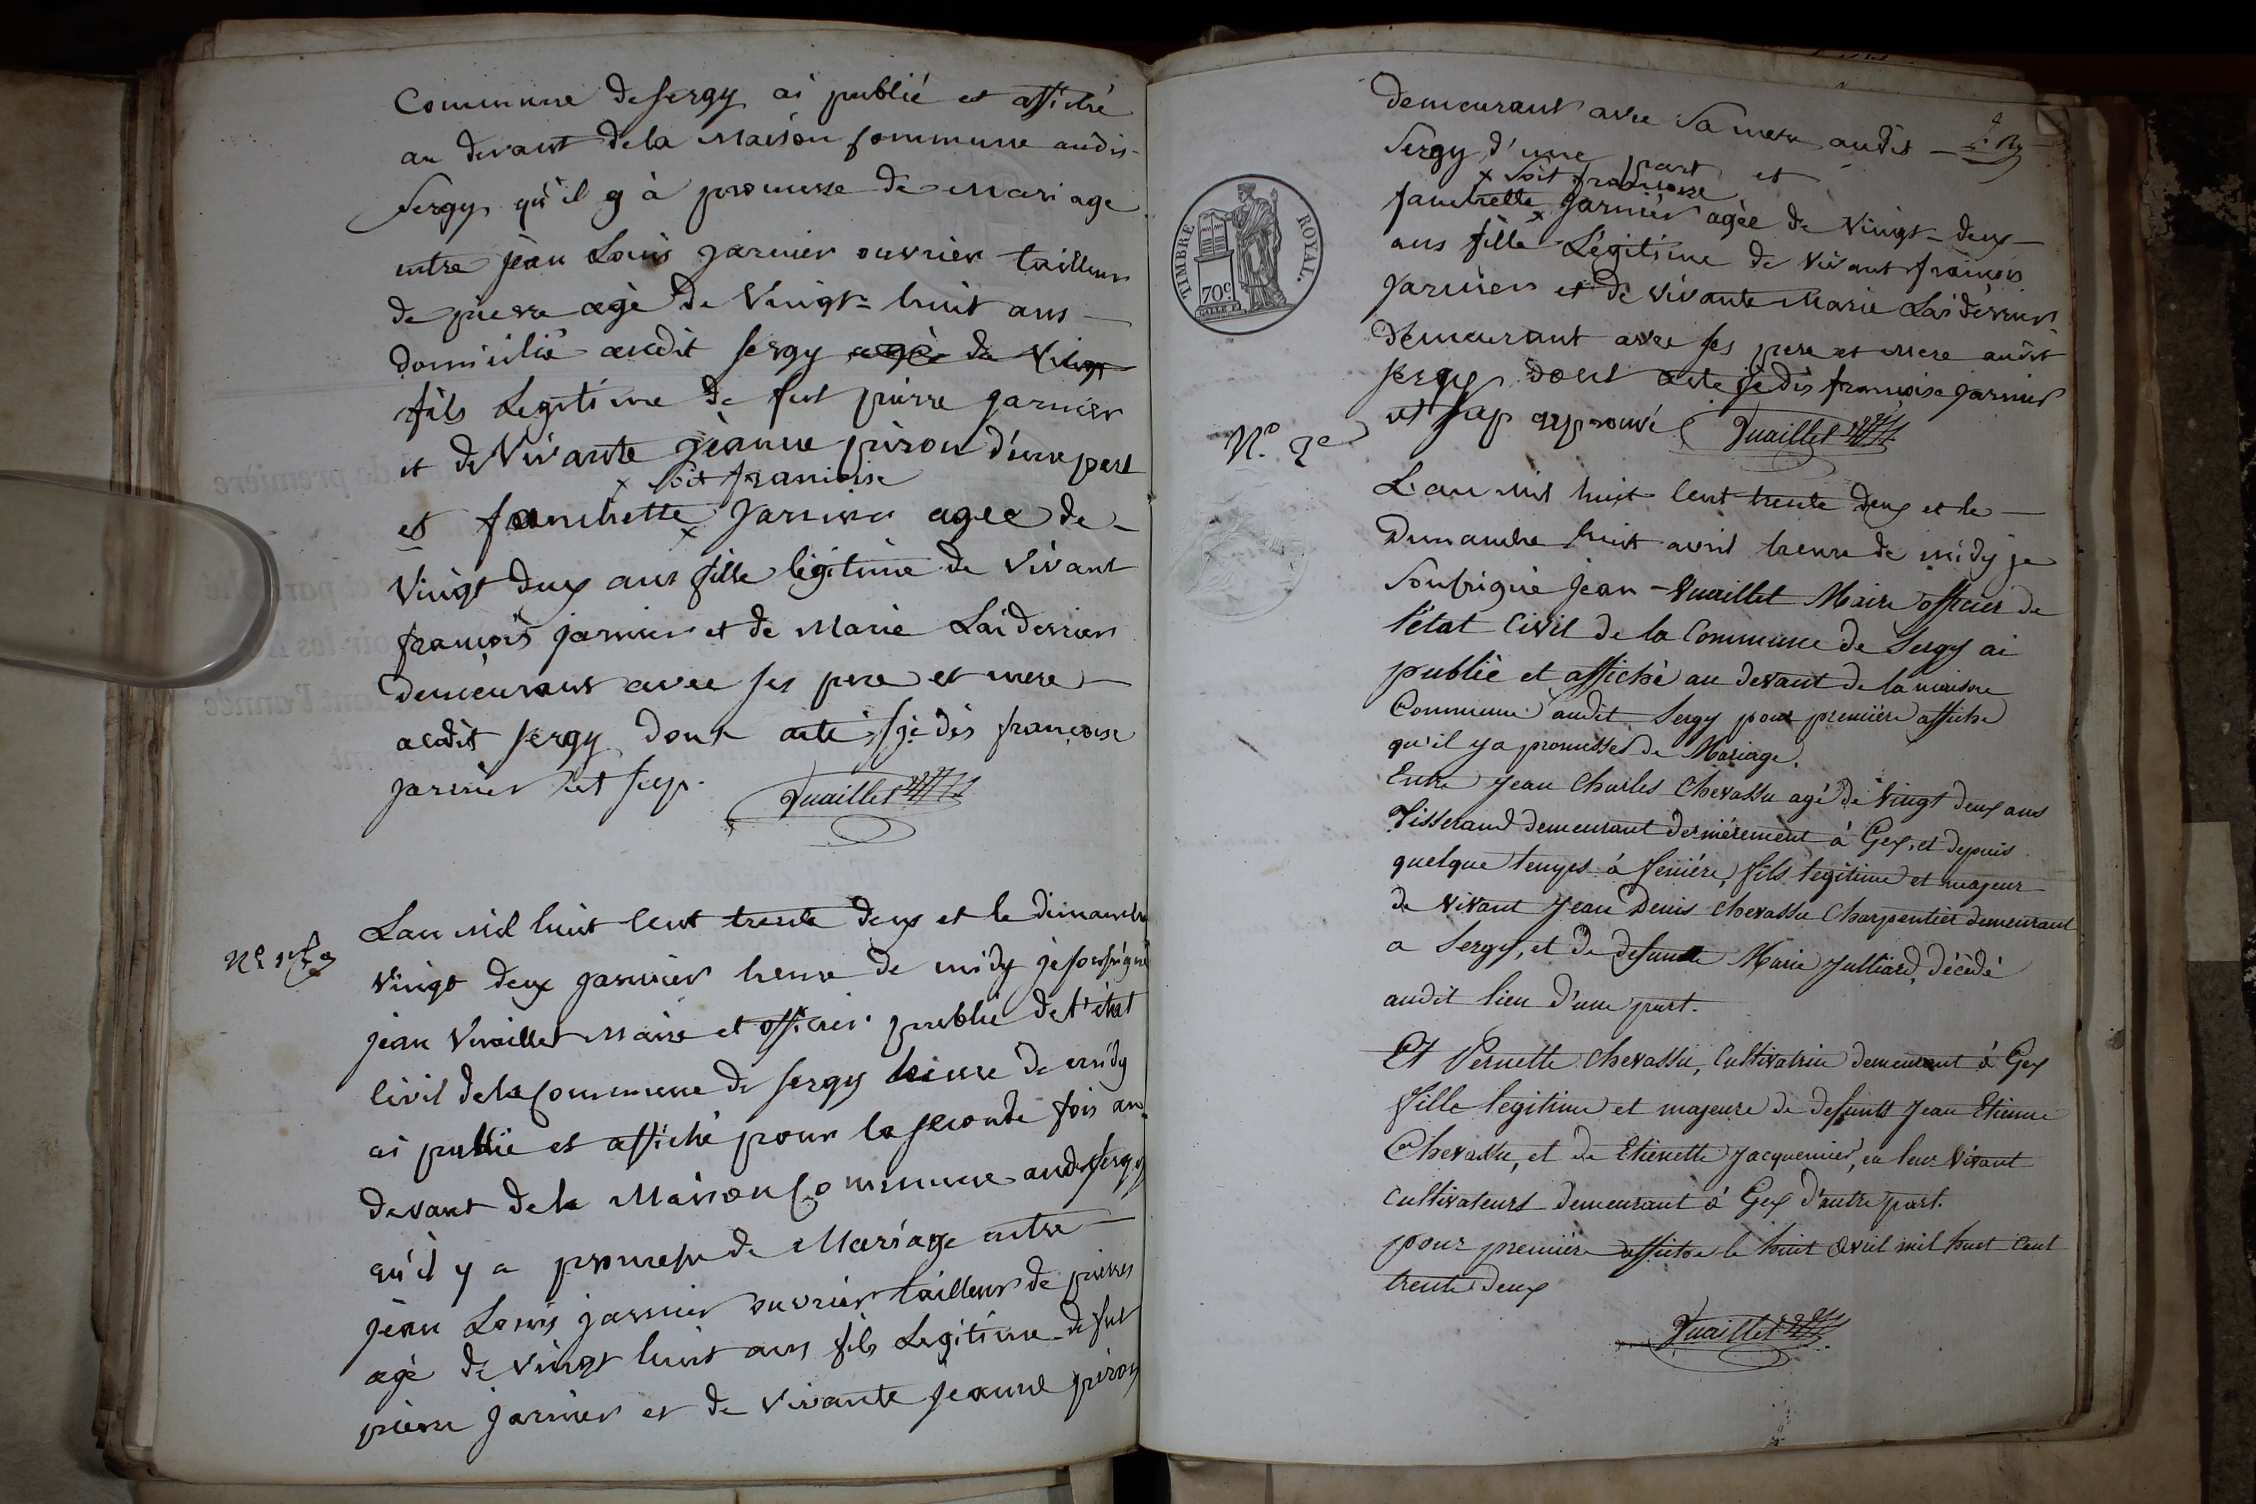 Commune de Sergy ai publié et affiché
au devant de la Maison Commune audit
Sergy qu'il y à promesse de mariage
entre jean Louis garnier ouvrier tailleur
de pierre agé de Vingt-huit ans
domicilié audit Sergy agé de Vingt
fils Legitime de feu pierre garnier
et de Vivante jeanne piron d'une part
x soit francoise
et fanchette x Garnier agee de
Vingt deux ans fille légitime de Vivant
françois garnier et de Marie Laiderrier
demeurant avec ses pere et mere
audit Sergy dont acte je dis françoise
garnier
Vuaillet
N.o 1er
L'an mil huit Cent trente deux et le dimanche
Vingt deux janvier heure de midy je soussigné
jean Vuaillet Maire et officier public de l'état
Civil de la Commune de Sergy heure de midy
ai publié et affiché pour la seconde fois au
devant de la Maison Commune audit Sergy
qu'il y a promesse de Mariage entre
jean Louis garnier ouvrier tailleur de pierres
agé de vingt huit ans fils Legitime de feu
pierre garnier et de vivante jeanne piron
demeurant avec sa mere audit
Sergy d'une part et
x soit francoise
fanchette x garnier agée de Vingt-deux
ans fille Légitime de Vivant françois
garnier et de Vivante Marie Laiderrier
demeurant avec ses pere et mere audit
Sergy dont acte je dis françoise garnier
approuvé Vuaillet
TIMBRE ROYAL.
70c.
N.o 2e
L'an mil huit Cent trente deux et le
Dimanche huit avril heure de midy je
Soussigné Jean Vuaillet Maire officier de
l'état Civil de la Commune de Sergy ai
publié et affiché au devant de la maison
Commune audit Sergy pour première affiche
qu'il y a promesses de Mariage.
Entre Jean Charles Chevassu agé de Vingt deux ans
Tisserand demeurant dernièrement à Gex, et depuis
quelque temps à Feniére, fils legitime et majeur
de vivant Jean Denis Chevassu Charpentier demeurant
a Sergy, et de defunte Marie Julliard, décédé
audit lieu d'une part.
Et Pernette Chevassu, Cultivatrice demeurant à Gex
fille legitime et majeure de defunts Jean Etienne
Chevassu, et de Etienette Jacquemier, en leur vivant
cultivateurs demeurant à Gex d'autre part.
pour première affiche le huit Avril mil huit Cent
trente deux
Vuaillet